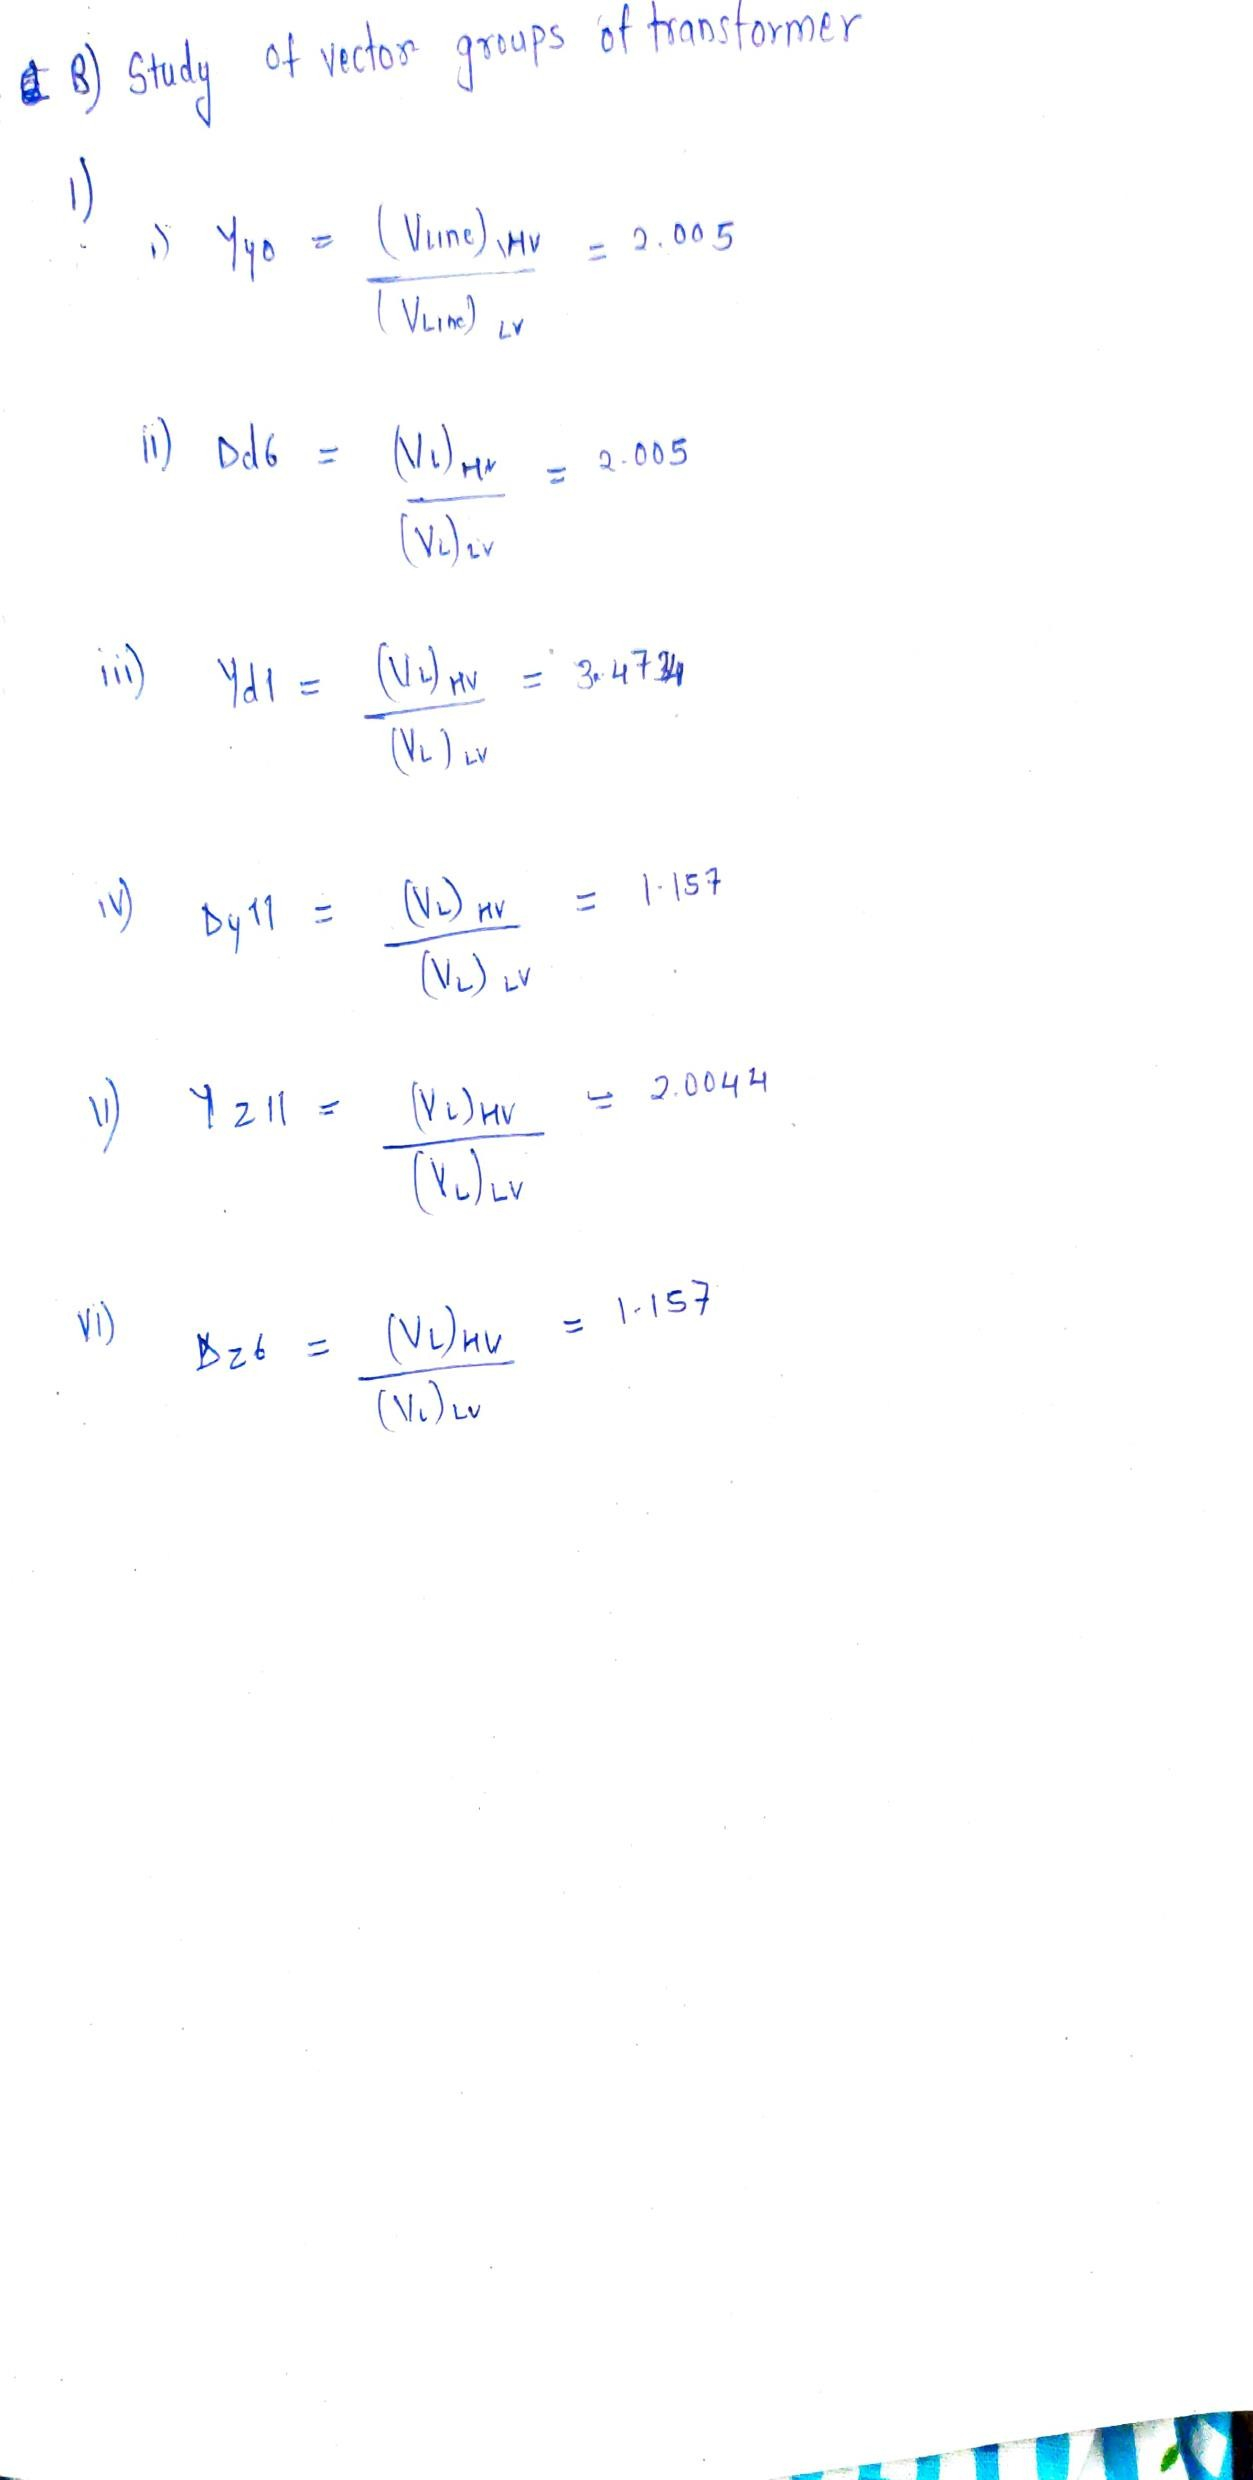 B) Study of vector groups of transformer
1)
i) Yy0 = (VLine) HV / (VLine) LV = 2.005
ii) Dd6 = (VL) HV / (VL) LV = 2.005
iii) Yd1 = (VL) HV / (VL) LV = 3.4734
iv) Dy11 = (VL) HV / (VL) LV = 1.157
v) Yz11 = (VL) HV / (VL) LV = 2.0044
vi) Dz6 = (VL) HV / (VL) LV = 1.157